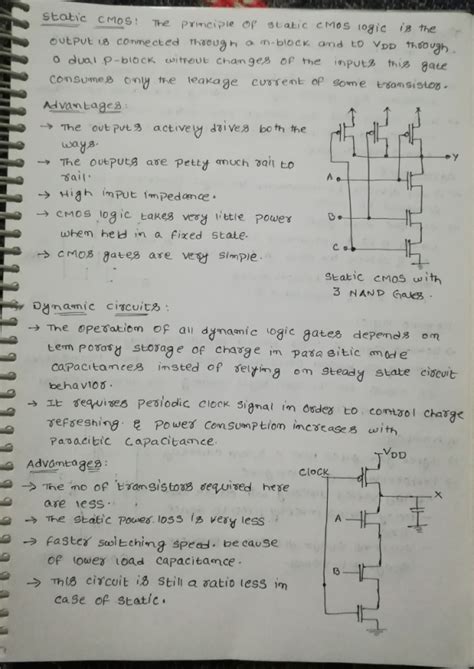 Static CMOS: The principle of static CMOS logic is the
output is connected through a n-block and to VDD through
a dual p-block without changes of the inputs this gate
consumes only the leakage current of some transistor.
Advantages:
→ The outputs actively drives both the
ways.
→ The outputs are Petty much rail to
rail.
→ High input impedance.
→ CMOS logic takes very little power
when held in a fixed state.
→ CMOS gates are very simple.
Y
A
B
C
Static CMOS with
3 NAND Gates.
Dynamic circuits:
→ The operation of all dynamic logic gates depends on
temporary storage of charge in parasitic mode
capacitances insted of relying on steady state circuit
behavior.
→ It requires periodic clock signal in order to control charge
refreshing. & power consumption increases with
paracitic capacitance.
Advantages:
→ The no of transistors required here
are less.
→ The static power loss is very less
→ faster switching speed. because
of lower load capacitance.
→ This circuit is still a ratio less in
case of static.
VDD
CLOCK
X
A
B